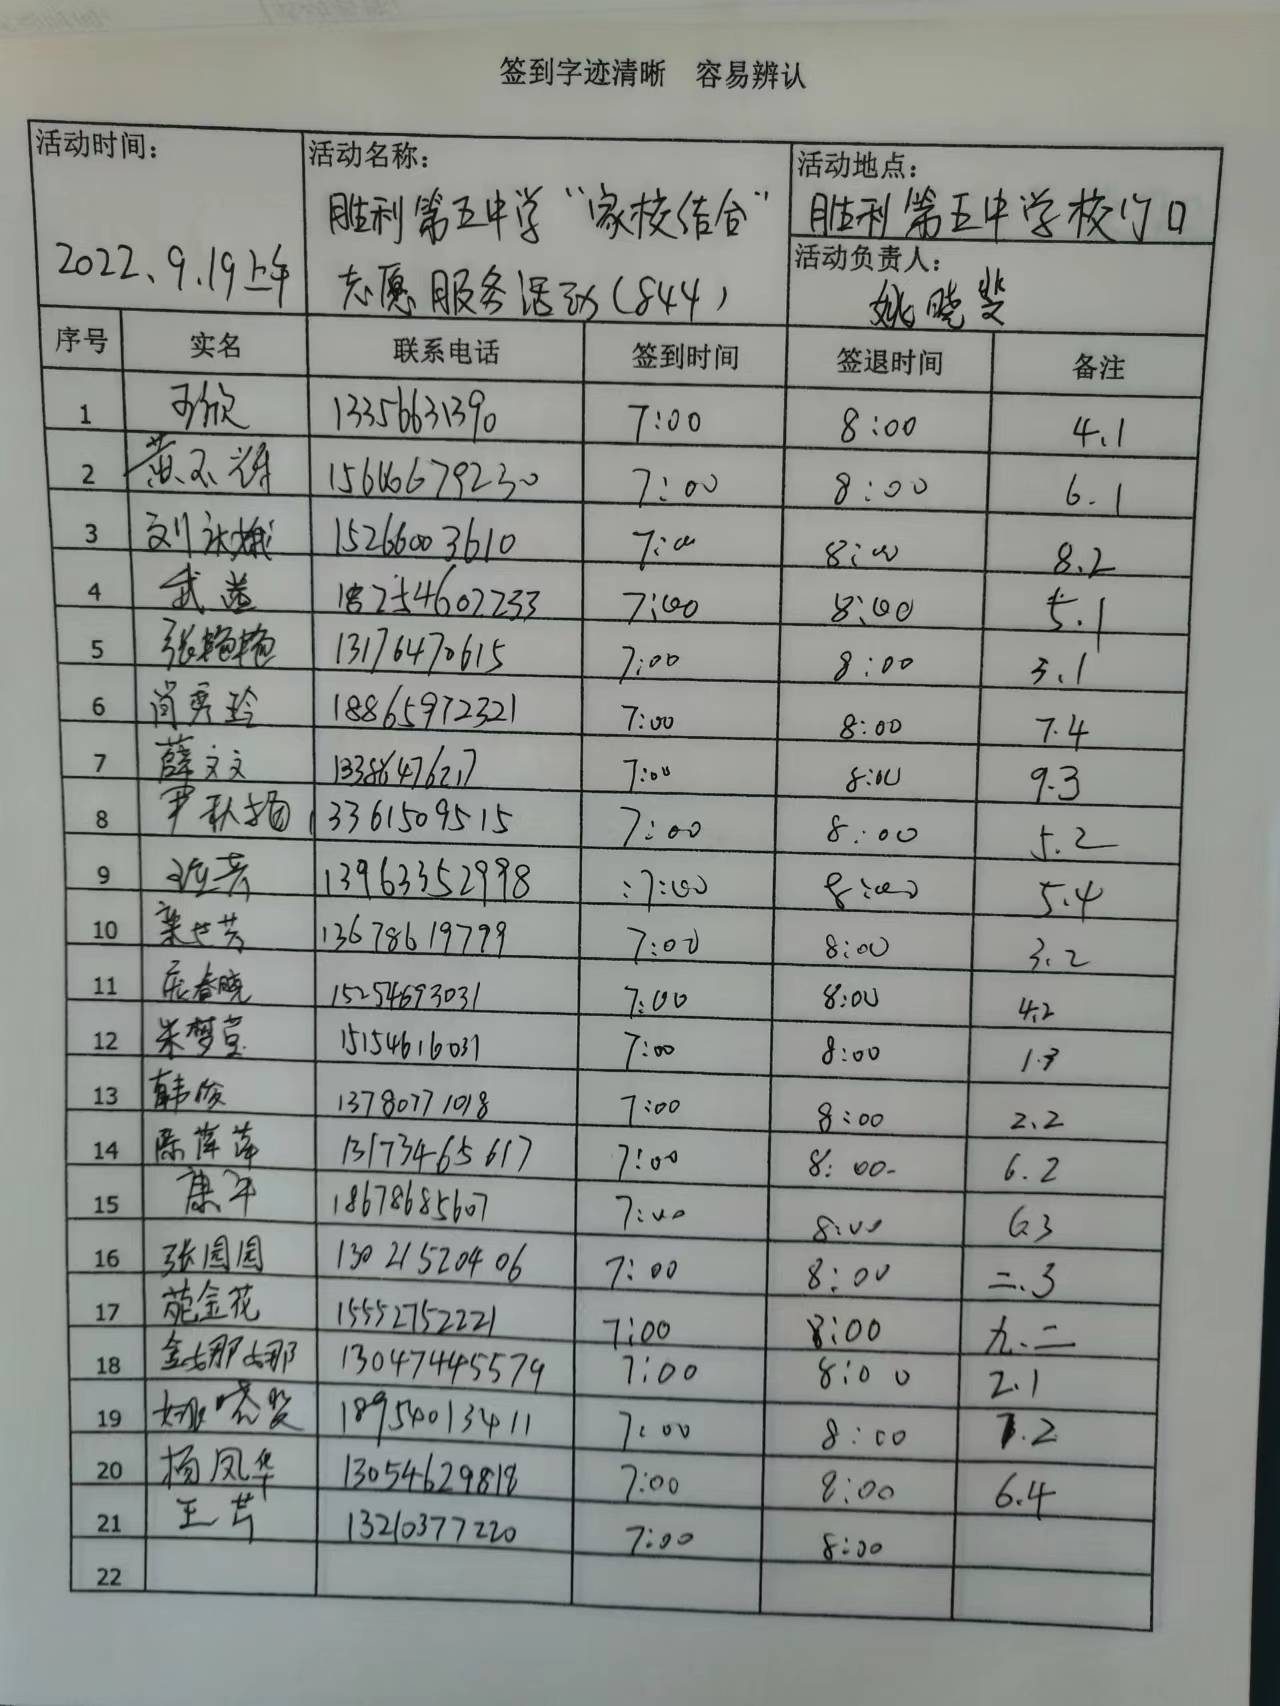 签到字迹清晰 容易辨认
活动时间：
2022、9.19上午
活动名称：
胜利第五中学“家校结合”
志愿服务活动（844）
活动地点：
胜利第五中学校门口
活动负责人：
姚晓斐
序号 实名 联系电话 签到时间 签退时间 备注
1 13356631390 7:00 8:00 4.1
2 15646679230 7:00 8:00 6.1
3 15266003610 7:00 8:00 8.2
4 武 18254602233 7:00 8:00 5.1
5 张艳艳 13176470615 7:00 8:00 3.1
6 肖秀玲 18865972321 7:00 8:00 7.4
7 薛文文 13386476217 7:00 8:00 9.3
8 尹秋梅 13361509515 7:00 8:00 5.2
9 13963352998 :7:00 8:00 5.4
10 梁世芳 13678619799 7:00 8:00 3.2
11 春晓 15254693031 7:00 8:00 4.2
12 朱梦莹 15154616031 7:00 8:00 1.3
13 韩俊 13780771018 7:00 8:00 2.2
14 陈萍萍 13173465617 7:00 8:00. 6.2
15 康军 18678685607 7:00 8:00 6.3
16 张园园 13021520406 7:00 8:00 二.3
17 金花 15552752221 7:00 8:00 九.二
18 金娜娜 13047445579 7:00 8:00 2.1
19 姚晓斐 18954013411 7:00 8:00 7.2
20 杨凤华 13054629818 7:00 8:00 6.4
21 王芹 13210377220 7:00 8:00
22